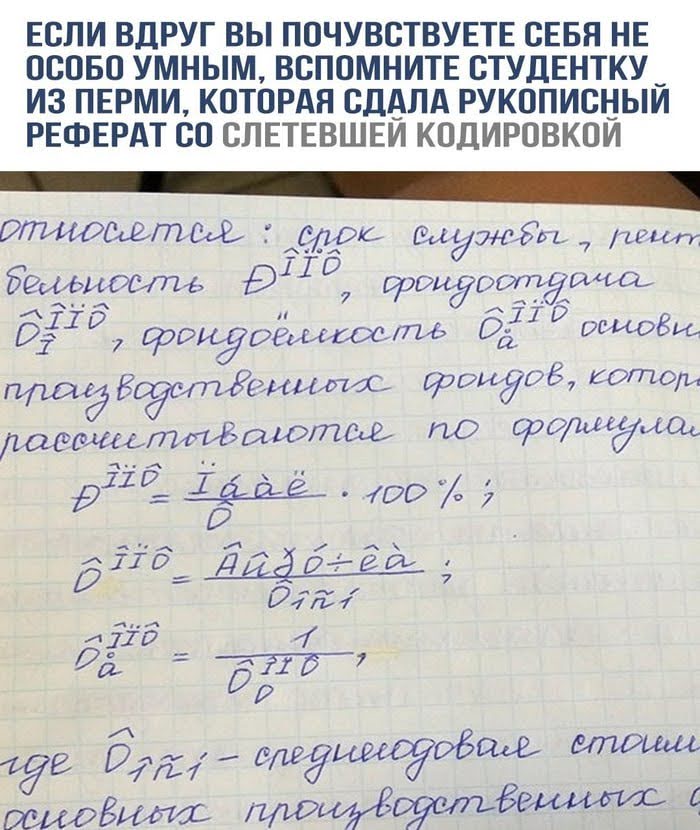 ЕСЛИ ВДРУГ ВЫ ПОЧУВСТВУЕТЕ СЕБЯ НЕ
ОСОБО УМНЫМ, ВСПОМНИТЕ СТУДЕНТКУ
ИЗ ПЕРМИ, КОТОРАЯ СДАЛА РУКОПИСНЫЙ
РЕФЕРАТ СО СЛЕТЕВШЕЙ КОДИРОВКОЙ
относятся: срок службы, рент
бельность Ð^ÎÏÔ, фондоотдача
Ô_Î^ÎÏÔ, фондоёмкость Ô_å^ÎÏÔ основн
производственных фондов, котор
рассчитываются по формулам
Ð^ÎÏÔ = Ïáàë / Ô · 100%;
Ô^ÎÏÔ = Âûðó÷êà / Ôîñí;
Ô_å^ÎÏÔ = 1 / Ô_О^ÎÏÔ,
где Ôîñí – среднегодовая стоим
основных производственных